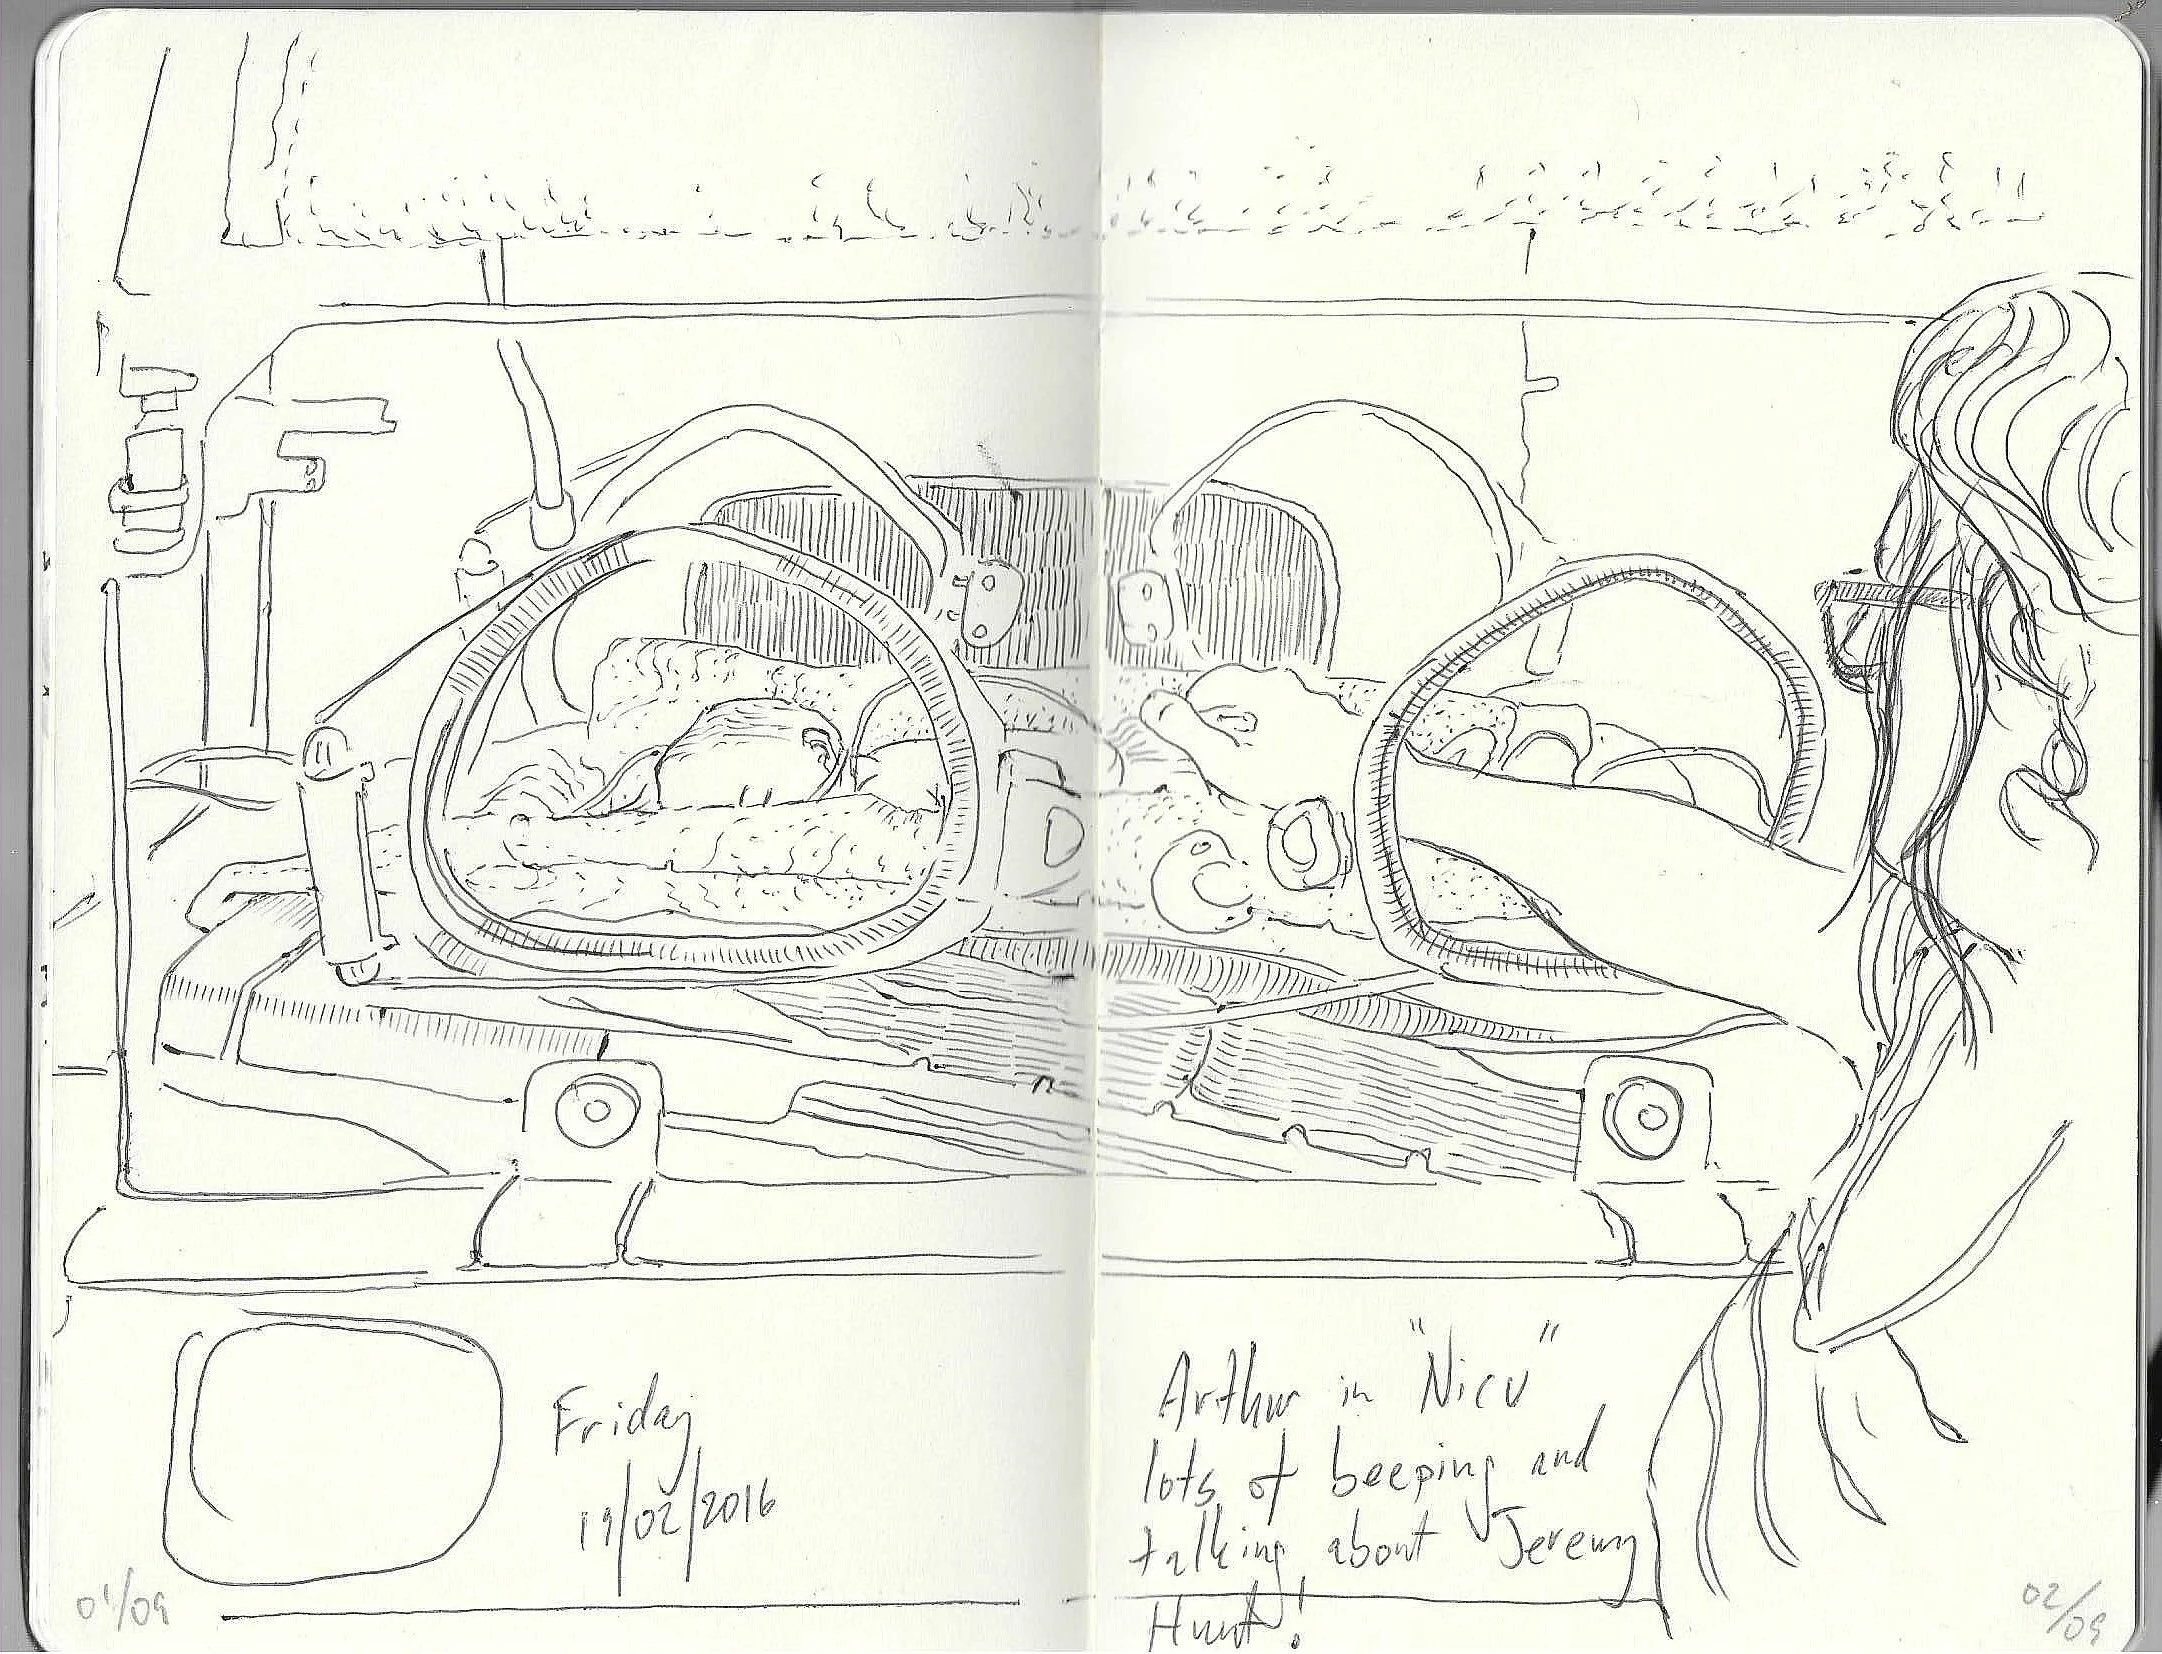 Friday
19/02/2016
Arthur in "Nicu"
lots of beeping and
talking about Jeremy
Hunt!
01/09
02/09